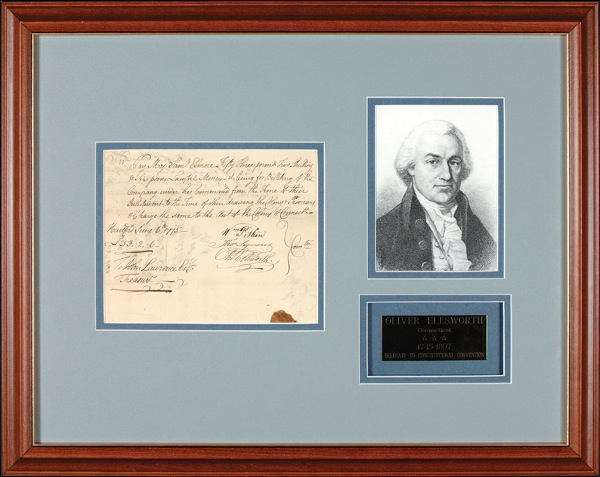 Pay May Sam.l Elmore Fifty Three pounds Two Shillings
& Six pence Lawful Money — being for Billeting of the
Company under his Command from the time of their
Inlistment to the time of their
& Charge the same to the of the Colony of Connect.
Hartf.d June 6.th 1775
£53.2.6
W.m Pitkin
Tho.s Seymour
Ol.r Ellsworth
Com.tte
To John Lawrence Esq.r
Treasur.r
OLIVER ELLSWORTH
Connecticut
1745-1807
DELEGATE TO CONSTITUTIONAL CONVENTION